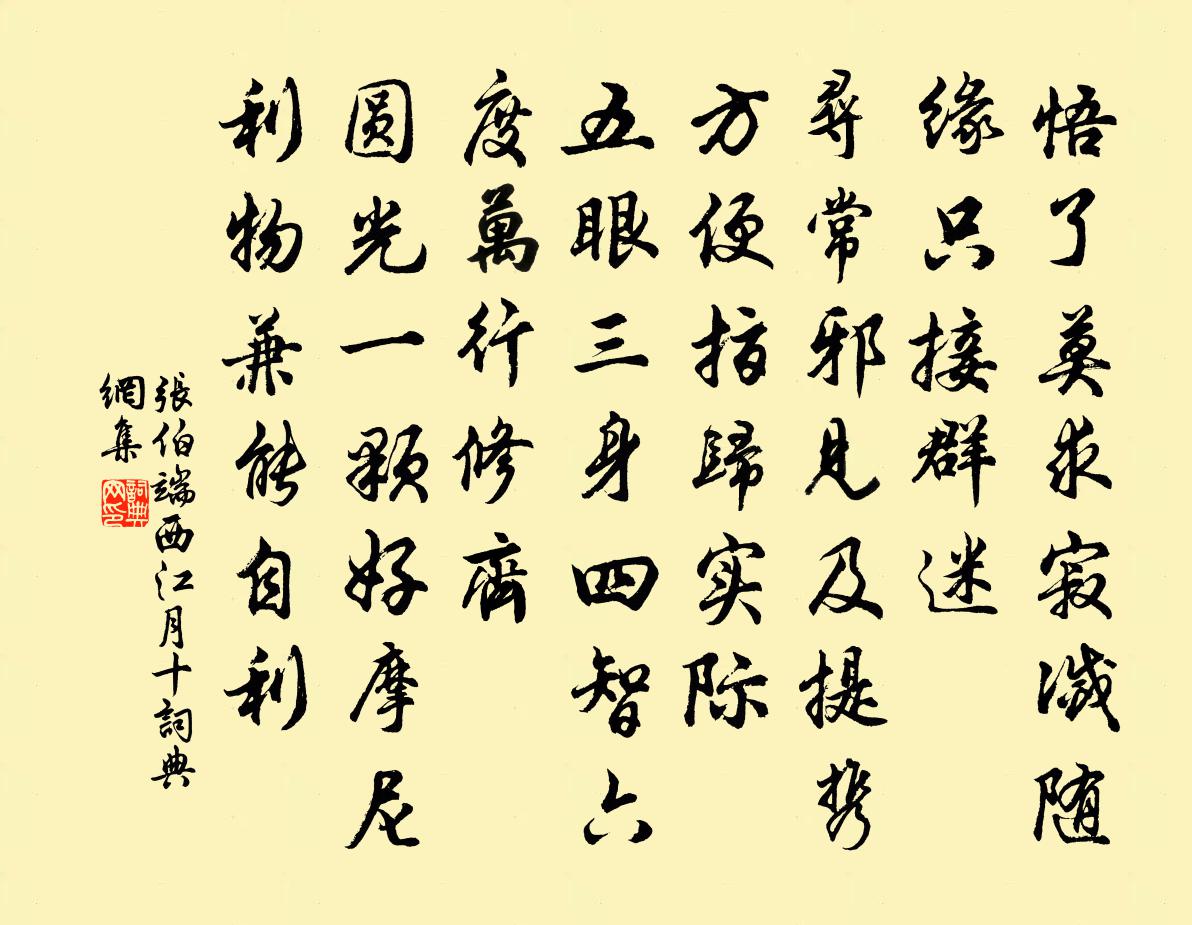 悟了莫求寂滅随
缘只接群迷
尋常邪見及提携
方便指歸实际
五眼三身四智六
度萬行修齊
圆光一颗好摩尼
利物兼能自利
張伯端西江月十詞典
網集
詞典
网印